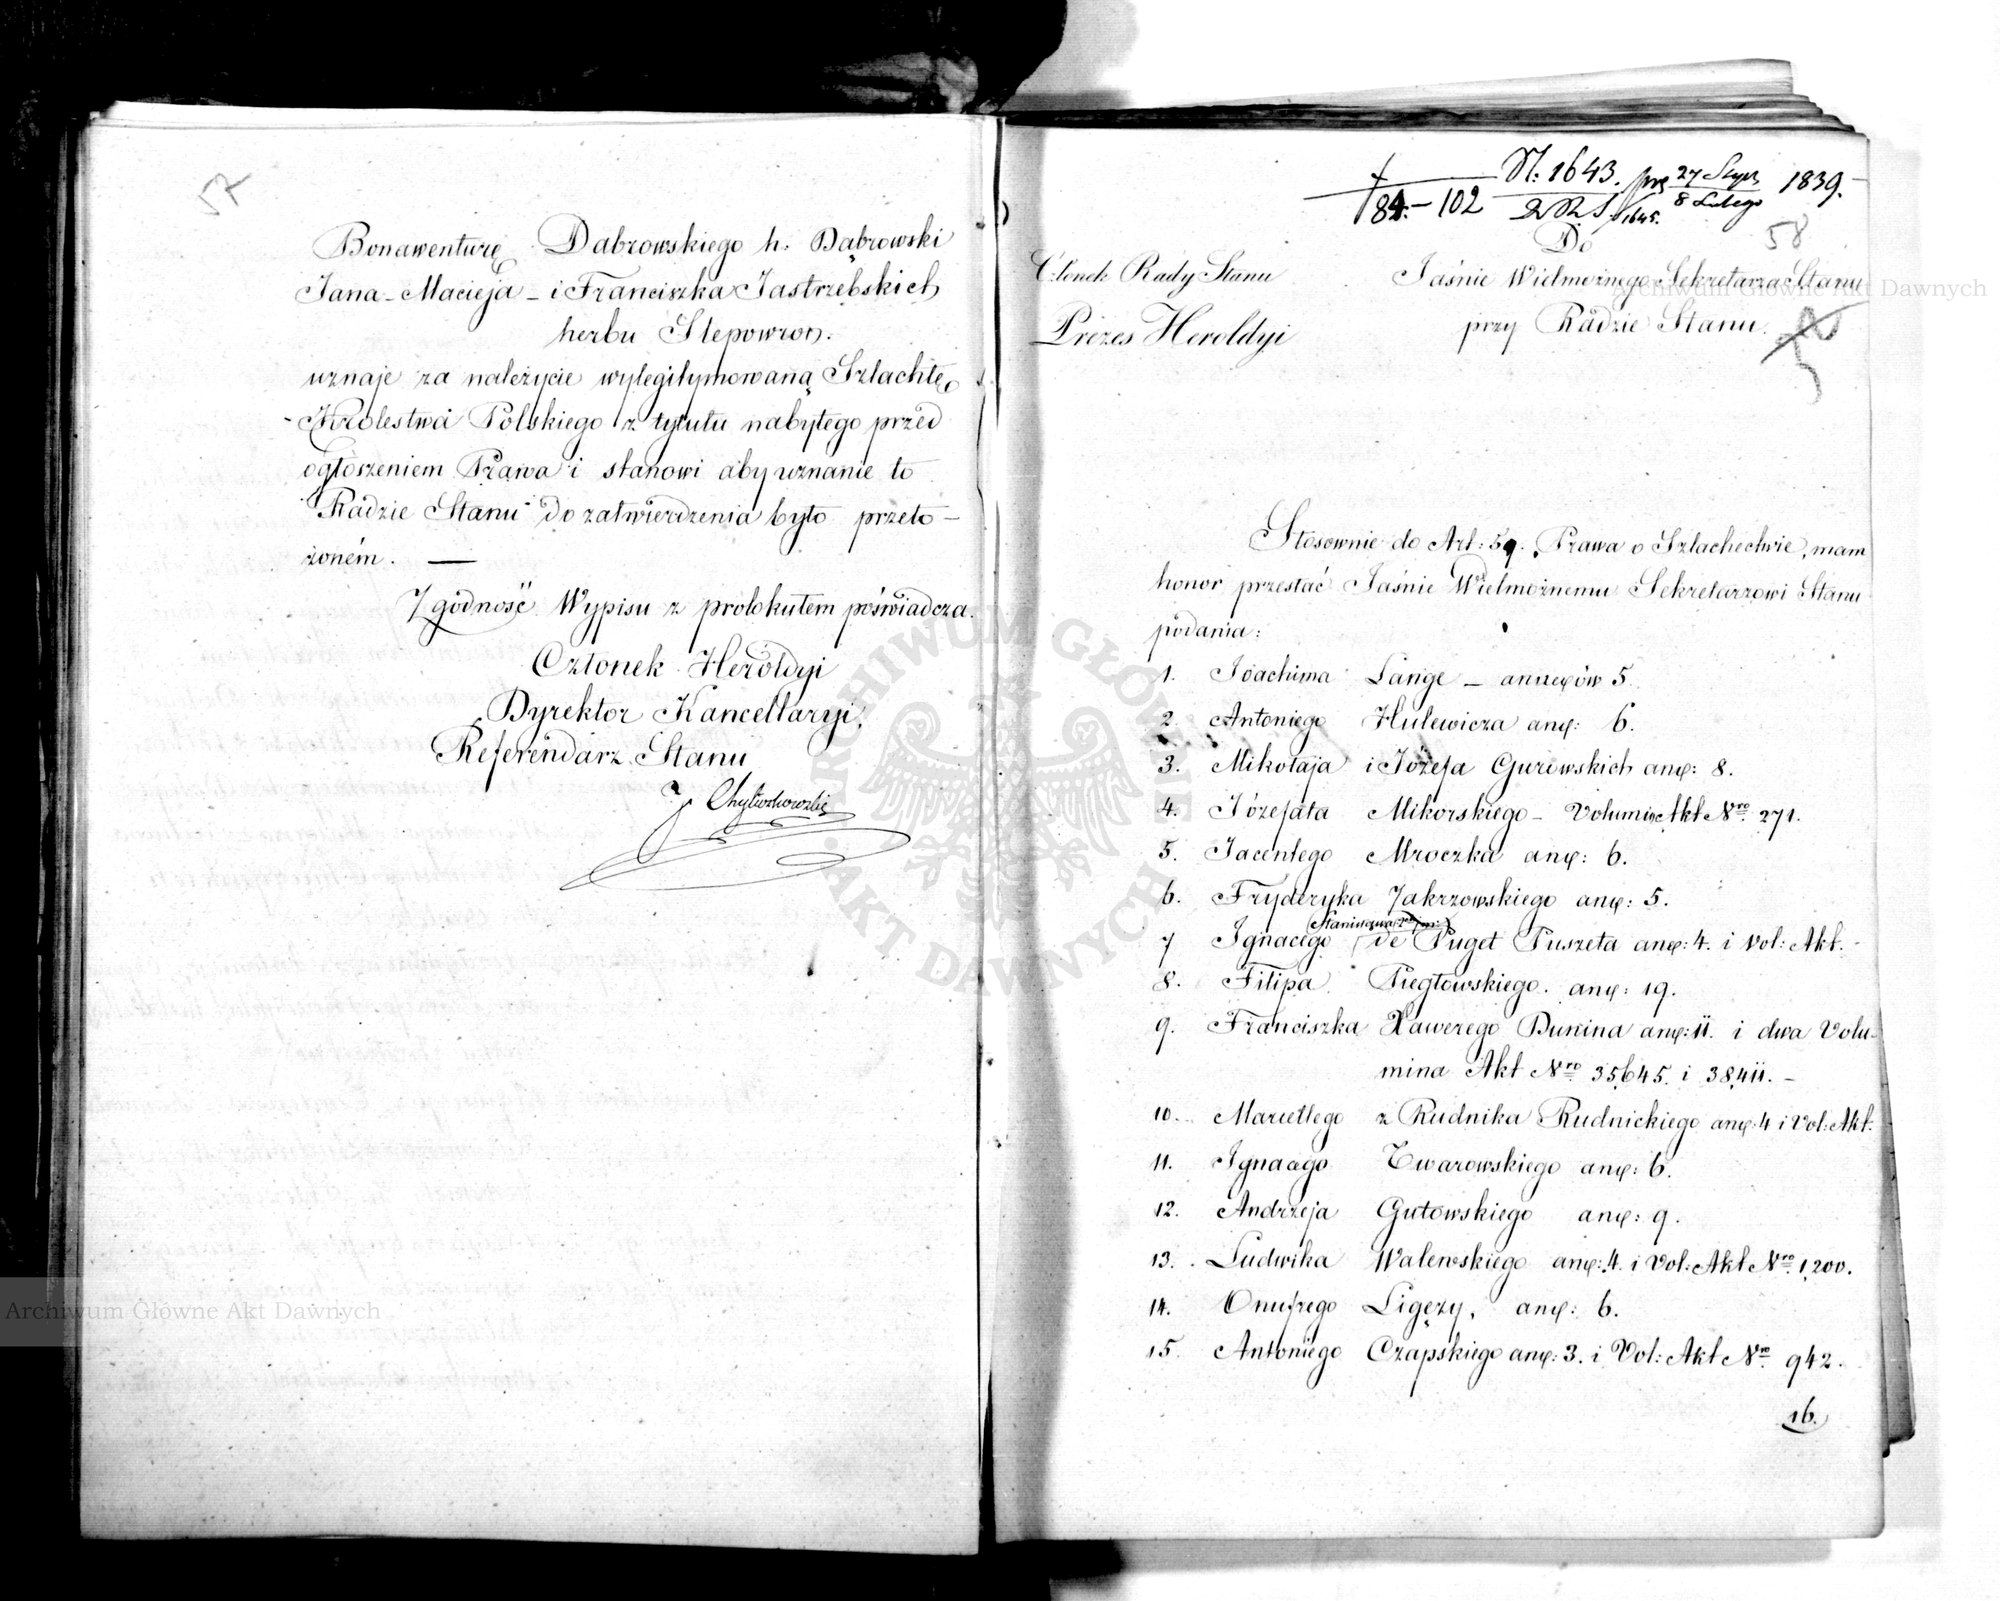 57
Bonawenturę Dąbrowskiego h. Dąbrowski
Jana - Macieja - i Franciszka Jastrzębskich
herbu Slepowron.
uznaje za należycie wylegitymowaną Szlachtę
Królestwa Polskiego z tytułu nabytego przed
ogłoszeniem Prawa i stanowi aby uznanie to
Radzie Stanu do zatwierdzenia było przeło-
żoném. —
Zgodność Wypisu z protokułem poświadcza.
Członek Heroldyi
Dyrektor Kancellaryi,
Referendarz Stanu
N: 1643. 27 Stycz. 1839.
84.-102 8 Lutego
1645.
58
Członek Rady Stanu
Prezes Heroldyi
Do
Jaśnie Wielmożnego Sekretarza Stanu
przy Radzie Stanu.
Stosownie do Art: 59. Prawa o Szlachectwie, mam
honor przesłać Jaśnie Wielmożnemu Sekretarzowi Stanu
podania:
1. Joachima Lange — annexów 5.
2. Antoniego Hulewicza anx: 6.
3. Mikołaja i Józefa Gurowskich anx: 8.
4. Józefata Mikorskiego - Volumin Akt Nro 271.
5. Jacentego Mroczka anx: 6.
6. Fryderyka Zakrzowskiego anx: 5.
Stanisława
7 Ignacego de Puget Puszeta anx: 4. i Vol: Akt.
8. Filipa Piegłowskiego. anx: 19.
9. Franciszka Xawerego Dunina anx: 11. i dwa Volu-
mina Akt Nro 35,645. i 38,411. -
10. Marcellego z Rudnika Rudnickiego anx: 4 i Vol: Akt.
11. Ignacego Twarowskiego anx: 6.
12. Andrzeja Gutowskiego anx: 9.
13. Ludwika Walewskiego anx: 4. i Vol: Akt Nro 1,200.
14. Onufrego Ligęzy, anx: 6.
15. Antoniego Czapskiego anx: 3. i Vol: Akt Nro 942.
16.
Archiwum Główne Akt Dawnych
ARCHIWUM GŁÓWNE
AKT DAWNYCH
Archiwum Główne Akt Dawnych